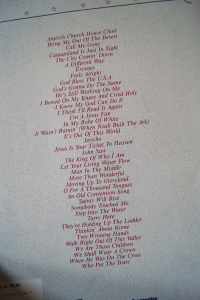 Antioch Church House Choir
Bring Me Out Of The Desert
Call Me Gone
Canaanland Is Just In Sight
The City Comin' Down
A Different Way
Excuses
Feels Alright
God Bless The U.S.A.
God's Gonna Do The Same
He's Still Working On Me
I Bowed On My Knees And Cried Holy
I Know My God Can Do It
I Think I'll Read It Again
I'm A Jesus Fan
In My Robe Of White
It Wasn't Rainin' (When Noah Built The Ark)
It's Out Of This World
Jericho
Jesus Is Your Ticket To Heaven
John Saw
The King Of Who I Am
Let Your Living Water Flow
Man In The Middle
More Than Wonderful
Moving Up To Gloryland
O For A Thousand Tongues
An Old Convention Song
Saints Will Rise
Somebody Touched Me
Step Into The Water
Tarry Here
They're Holding Up The Ladder
Thinkin' About Home
Two Winning Hands
Walk Right Out Of This Valley
We Are Those Children
We Shall Wear A Crown
When He Was On The Cross
Who Put The Tears